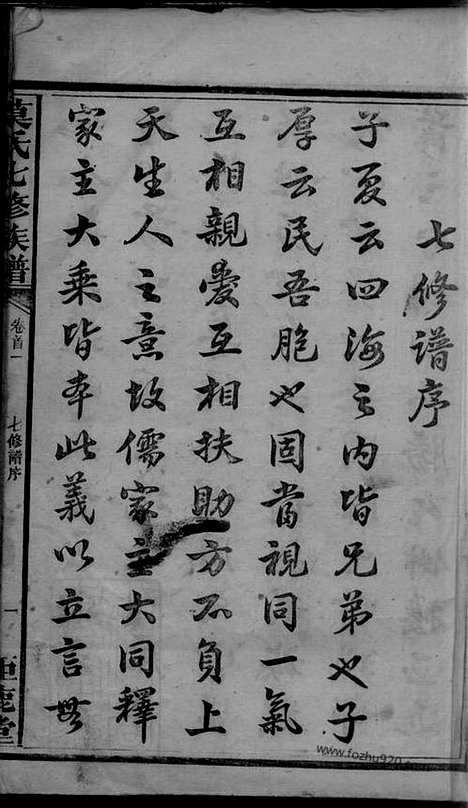 七修譜序
子夏云四海之内皆兄弟也子
厚云民吾胞也固當視同一氣
互相親愛互相扶助方不負上
天生人之意故儒家主大同釋
家主大乘皆本此義以立言無
莫氏七修族譜
卷首一
七修譜序
一
鹿堂
www.fozhu920.com